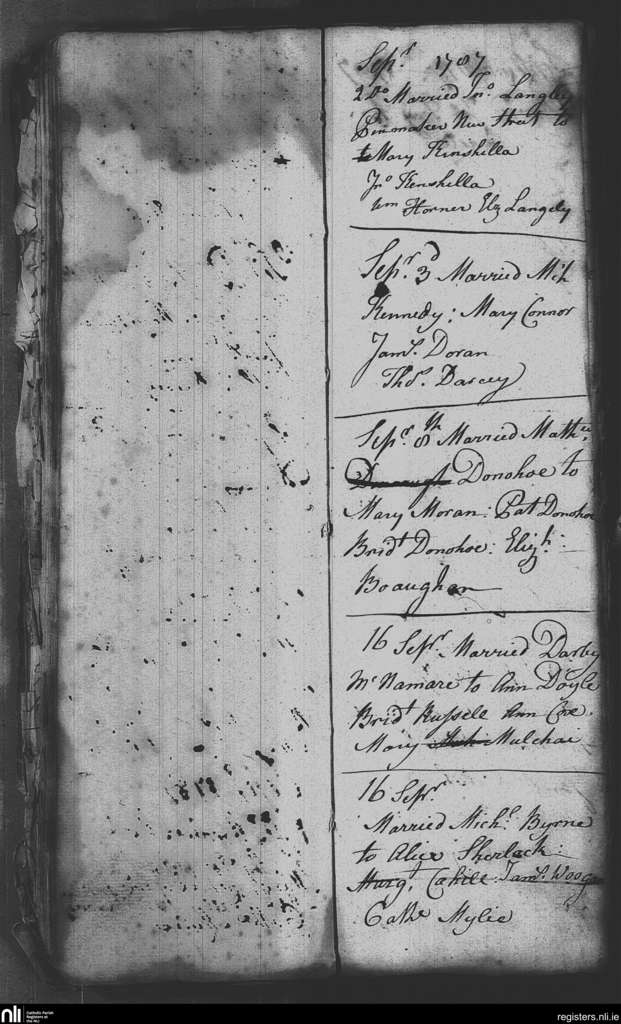 Sepr. 1787
2do Married Jno. Langley
Pinmaker New Street to
Mary Kinshilla
Jno Kenshilla
Wm Horner Elz Langely
Sepr. 3d Married Mich
Kennedy: Mary Connor
Jams. Doran
Thos. Darcey
Sepr. 8th Married Matthew
Donohoe to
Mary Moran: Pat Donohoe
Bridt Donohoe: Elizh:
Boaughan
16 Sepr. Married Darby
Mc Namare to Ann Doyle
Bridt Russele Ann Coe.
Mary Mulchae
16 Sepr.
Married Michl. Byrne
to Alice Sherlock:
Margt. Cahill: Jams. Woog
Cathe Mylie
nli
Catholic Parish
Registers at
the NLI
registers.nli.ie